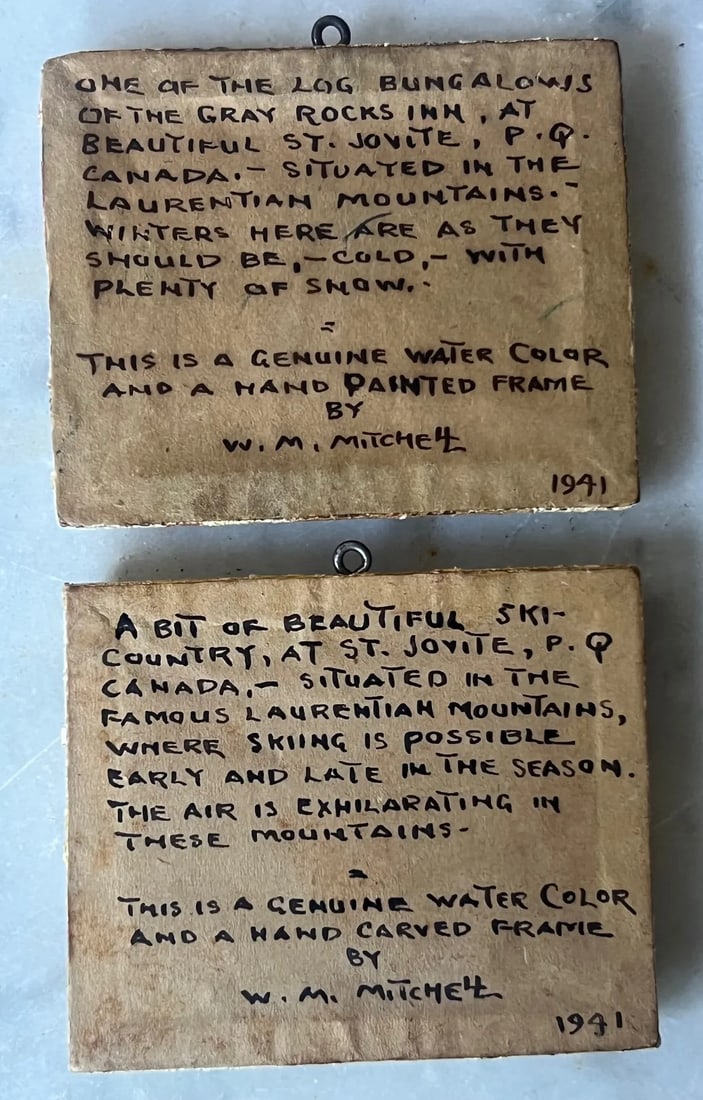 ONE OF THE LOG BUNGALOWS
OF THE GRAY ROCKS INN, AT
BEAUTIFUL ST. JOVITE, P.Q.
CANADA.- SITUATED IN THE
LAURENTIAN MOUNTAINS.-
WINTERS HERE ARE AS THEY
SHOULD BE,-COLD,- WITH
PLENTY OF SNOW.-
=
THIS IS A GENUINE WATER COLOR
AND A HAND PAINTED FRAME
BY
W. M. MITCHELL
1941
A BIT OF BEAUTIFUL SKI-
COUNTRY, AT ST. JOVITE, P.Q
CANADA,- SITUATED IN THE
FAMOUS LAURENTIAN MOUNTAINS,
WHERE SKIING IS POSSIBLE
EARLY AND LATE IN THE SEASON.
THE AIR IS EXHILARATING IN
THESE MOUNTAINS-
=
THIS IS A GENUINE WATER COLOR
AND A HAND CARVED FRAME
BY
W. M. MITCHELL
1941